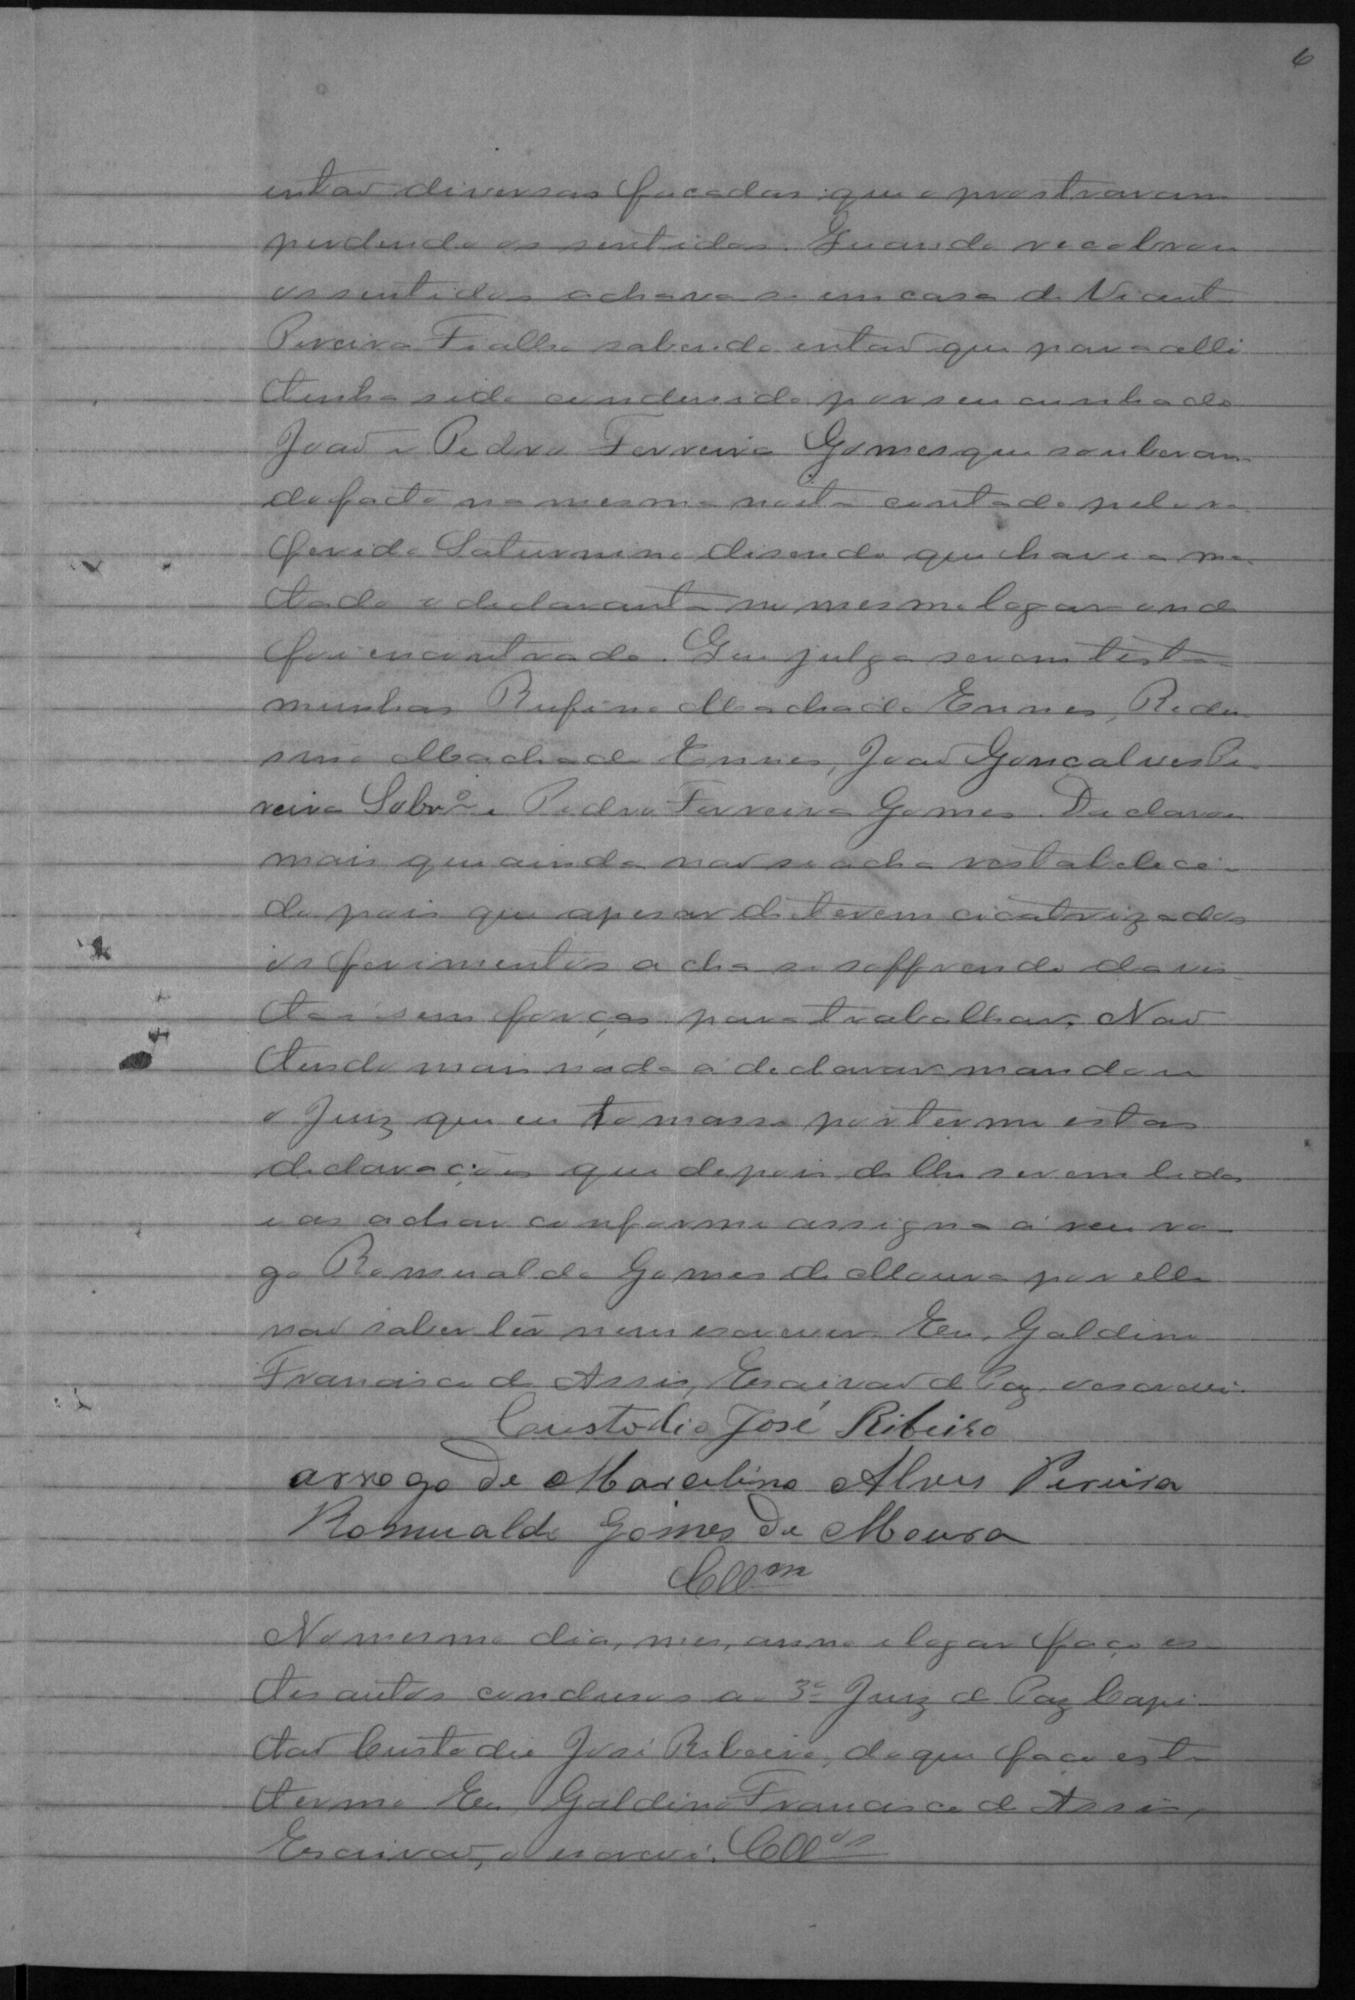 6
entaõ diversas facadas que o prostraram
perdendo os sentidos. Quando recobrou
os sentidos achava se em casa de Vicente
Pereira Fialho sabendo entaõ que para alli
tinha sido condusido por seu cunhado
Joaõ e Pedro Ferreira Gomes que souberam
do facto na mesma noite contado pelo re-
ferido Saturnino disendo que havia ma-
tado o declarante no mesmo logar onde
foi encontrado. Que julga serem teste-
munhas Rufino Machado Ennes, Redu-
sino Machado Ennes, Joaõ Gonçalves Pe-
reira Sobrº e Pedro Ferreira Gomes. Declarou
mais que ainda naõ se acha restabeleci-
do pois que apesar de terem cicatrizados
os ferimentos acha se soffrendo da vis-
ta e sem forças para trabalhar. Naõ
tendo mais nada a declarar mandou
o Juiz que eu tomasse por termo estas
declarações que depois de lhe serem lidas
e as achar conforme assigna á seu ro-
go Romualdo Gomes de Moura por elle
naõ saber lêr nem escrever. Eu, Galdino
Francisco de Assis, Escrivaõ de Paz o escrevi.
Custodio José Ribeiro
arrogo de Marcelino Alves Pereira
Romualdo Gomes de Moura
Cllm
No mesmo dia, mes, anno e logar faço es-
tes autos conclusos ao 3º Juiz de Paz Capi-
taõ Custodio José Ribeiro, do que faço este
termo Eu Galdino Francisco de Assis,
Escrivaõ, o escrevi. Cllos